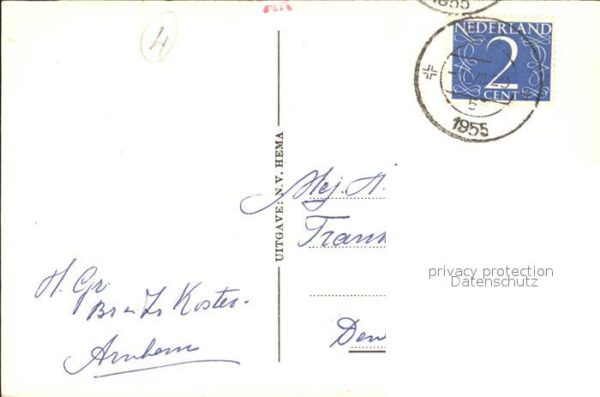 4
1955
NEDERLAND
2
CENT
5
1955
UITGAVE: N.V. HEMA
Mej. H.
Trans
privacy protection
Datenschutz
H. Gr.
Br en Zr Koster.
Den
Arnhem